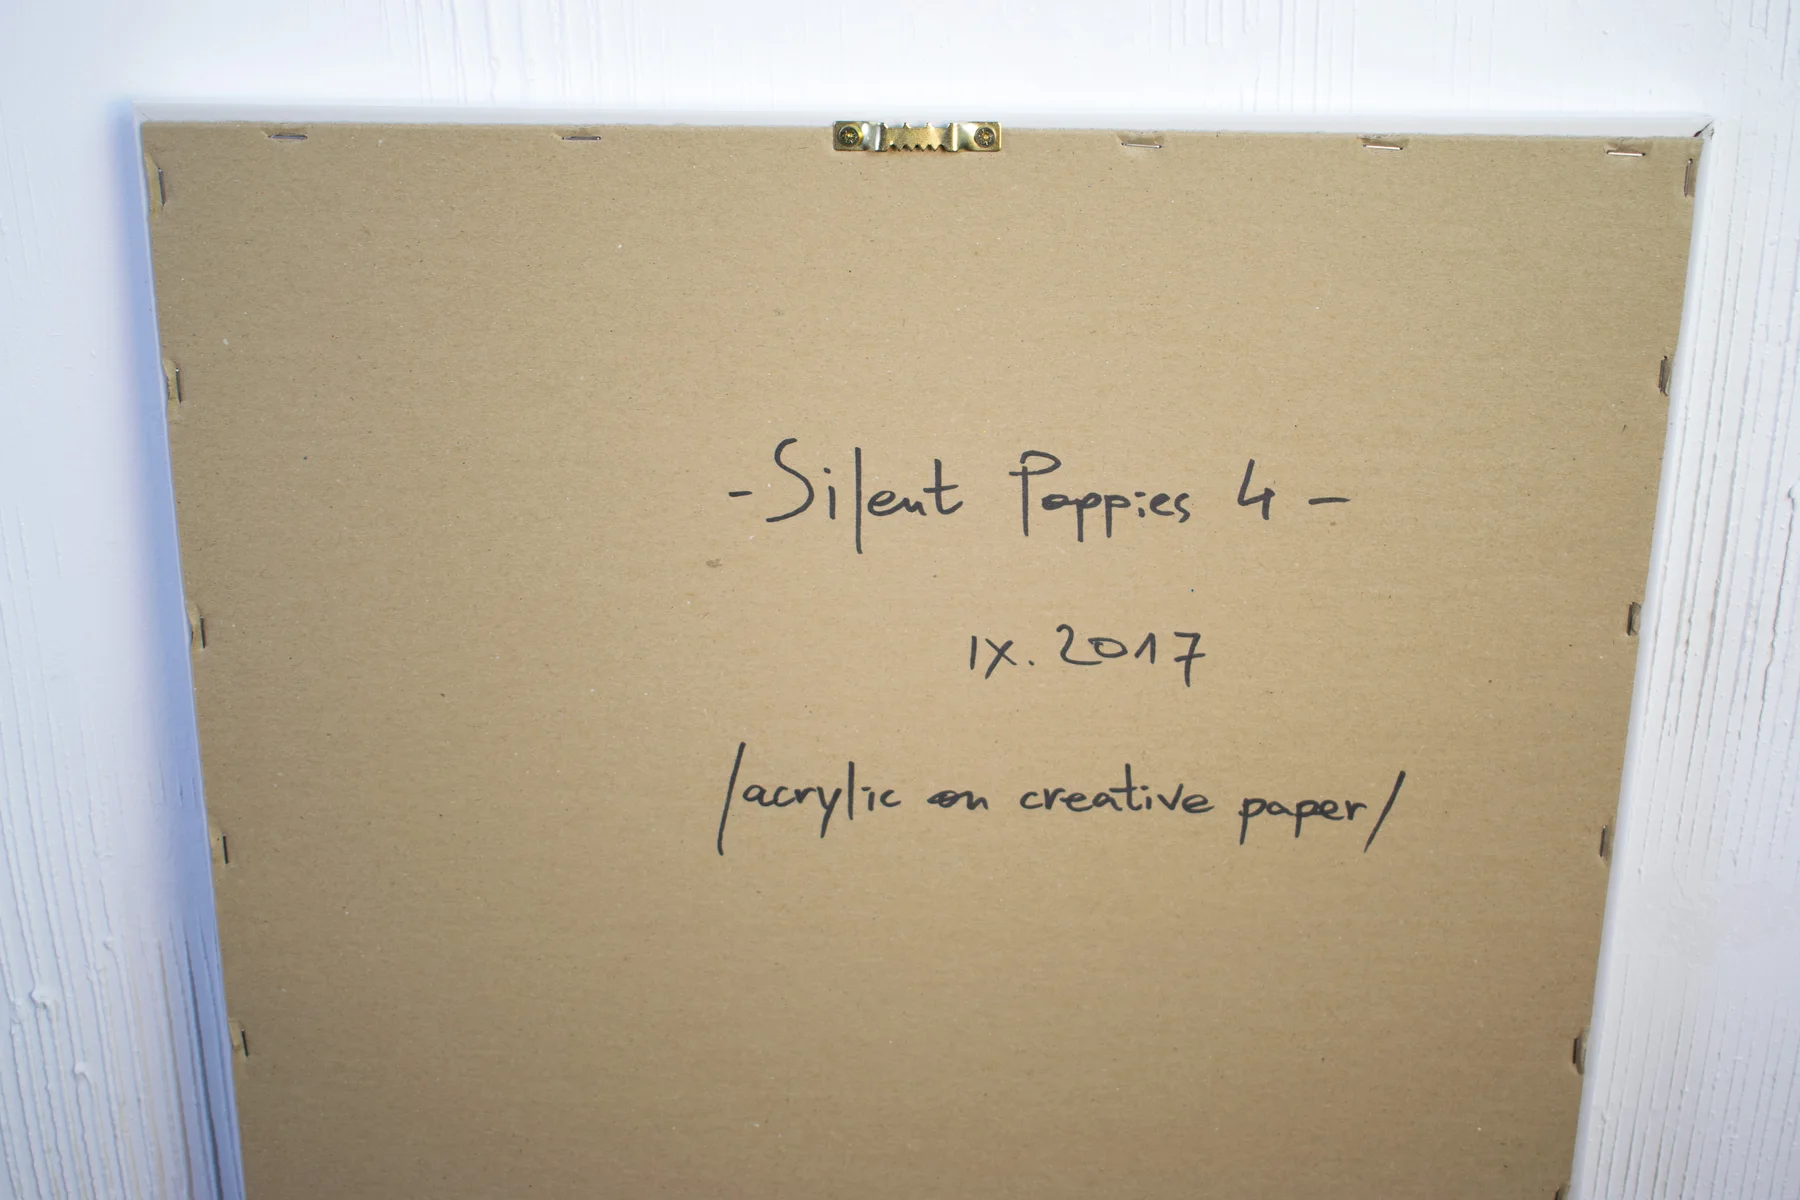 - Silent Poppies 4 -
IX. 2017
/acrylic on creative paper/